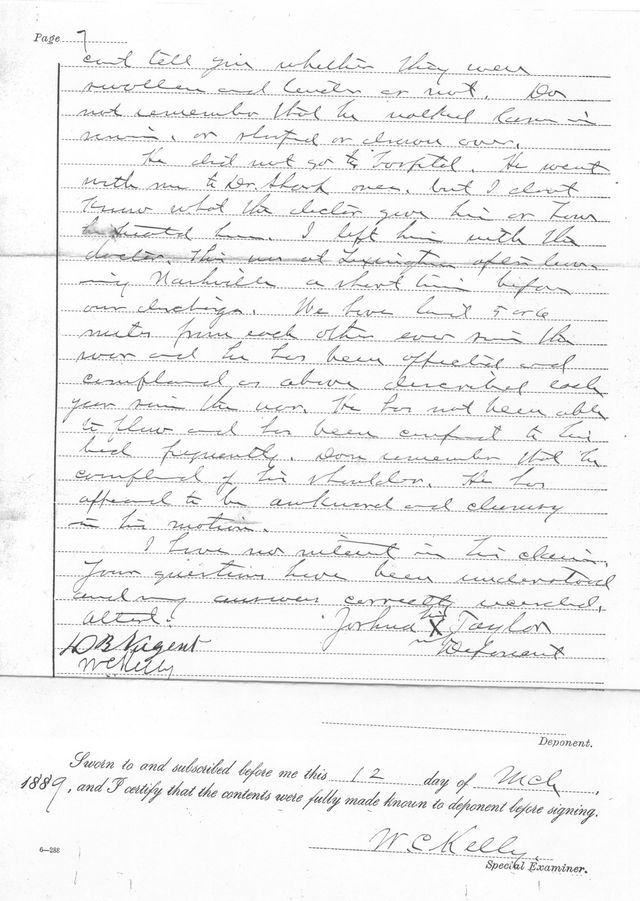 Page 7
can't tell you whether they were
swollen and tender or not. Do
not remember that he walked lame in
or stooped or drawn over.
He did not go to Hospital. He went
with me to Dr. once, but I don't
know what the doctor give him or how
he treated him. I left him with the
doctor. This was at Lexington after leav
ing Nashville a short time before
our discharge. We have lived 5 or 6
miles from each other ever since the
war and he has been affected and
complained as above described each
year since the war. He has not been able
to plow and has been confined to his
bed frequently. Don't remember that he
complained of his shoulder. He has
appeared to be awkward and clumsy
in his motion.
I have no interest in his claim.
Your questions have been understood
and my answers correctly recorded.
Attest: Joshua his X Taylor
D B Nugent Deponent
W C Kelly
Deponent.
Sworn to and subscribed before me this 12 day of Mch,
1889, and I certify that the contents were fully made known to deponent before signing.
W. C Kelly.
6—288 Special Examiner.